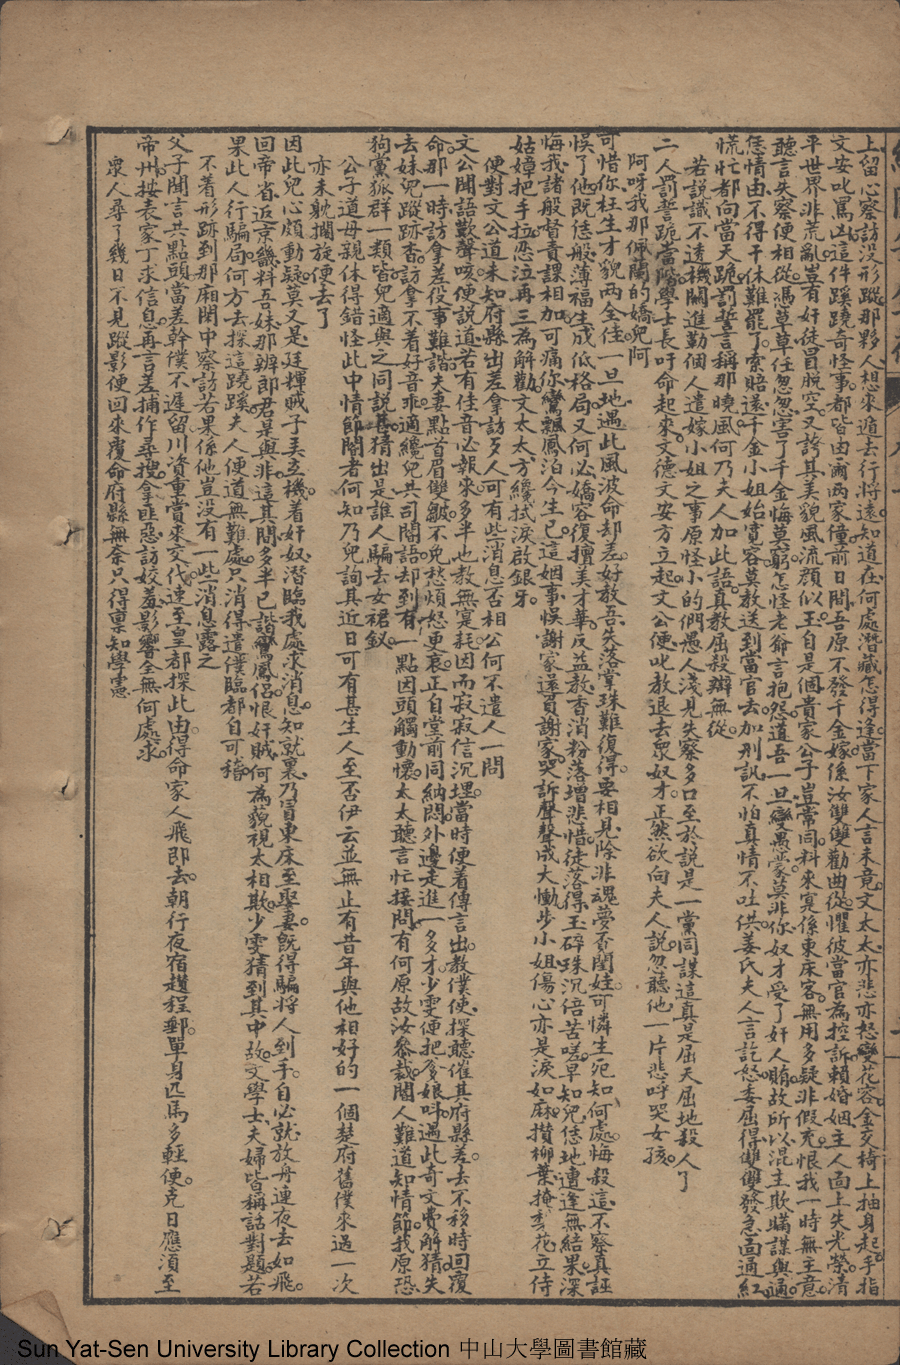 上留心察訪没形蹤那夥人想來遁去行將遠知道在何處潛藏怎得逢當下家人言未竟文太太亦悲亦怒變花容金交椅上抽身起手指
文安叱罵凶這件蹊蹺奇怪事都皆由爾両家僮前日間吾原不發千金嫁係汝雙雙勸曲從懼彼當官為控訴賴婚姻主人面上失光榮清
平世界非荒亂豈有奸徒冒脫空又誇其美貌風流顔似玉自是個貴家公子豈常同料來寔係東床客無用多疑非假充恨我一時無主意
聽言失察便相從馮草草任忽忽害了千金悔莫窮怎怪老爺言抱怨道吾一旦變愚蒙莫非你奴才受了奸人賄故所以混主欺瞞謀與通
恁情由不得干休難罷了索賠還千金小姐始寬容莫教送到當官去加刑訊不怕真情不吐供姜氏夫人言訖怒委屈得雙雙發急面通紅
慌忙都向當天跪罰誓言稱那曉風何乃夫人加此語真教屈殺辯無從
若説識不透機關進勸個人遣嫁小姐之事原怪小的們愚人淺見失察多口至於説是一黨同謀這真是屈天屈地殺人了
二人罰誓跪當階學士長吁命起來文德文安方立起文公便叱教退去衆奴才正然欲向夫人説忽聽他一片悲呼哭女孩
阿呀我那佩蘭的嬌兒阿
可惜你枉生才貌両全佳一旦地遇此風波命却差好教吾失落掌珠難復得要相見除非魂夢香閨娃可憐生死知何處悔殺這不察真誣
悞了他既恁般薄福生成低格局又何必嬌容復擅美才華反益教香消粉落增悲惜徒落得玉碎珠沉倍苦嗟早知兒恁地遭逢無結果深
悔我諸般督責課相加可痛你鸞飄鳳泊今生已這姻事悞謝家還負謝家哭訴聲聲成大慟步小姐傷心亦是淚如麻攢柳葉掩李花立侍
姑嫜把手拉悲泣再三為解勸文太太方纔拭淚啟銀牙
便對文公道未知府縣出差拿訪歹人可有些消息否相公何不遣人一問
文公聞語歎聲咳便説道若有佳音必報來多半也教無寔耗因而寂寂信沉埋當時便着傳言出教僕使探聽催其府縣差去不移時回覆
命那一時訪拿差役事難諧夫妻點首眉雙皺不免愁煩怒更哀正自堂前同納悶外邊走進一多才少雯便把爹娘呌遇此奇文費解猜失
去妹兒蹤跡杳訪拿不着好音乖適纔兒共司閽語却到有一點因頭觸動懷太太聽言忙接問有何原故汝叅裁閽人難道知情節我原恐
狗黨狐群一類皆兒適與之同説甚猜出是誰人騙去女裙釵
公子道母親休得錯怪此中情節閽者何知乃兒詢其近日可有甚生人至否伊云並無止有昔年與他相好的一個楚府舊僕來過一次
亦未躭擱旋便去了
因此兒心頗動疑莫又是廷輝賊子弄玄機着奸奴潛臨我處求消息知就裏乃冒東床至娶妻既得騙將人到手自必就放舟連夜去如飛
回帝省返京畿料吾妹那辨郎君是與非這其間多半已諧鸞鳳侶恨奸賊何為藐視太相欺少雯猜到其中故文學士夫婦皆稱話對題若
果此人行騙局何方去探這蹺蹊夫人便道無難處只消得遣僕臨都自可稽
不着形跡到那廂閒中察訪若果係他豈没有一些消息露之
父子聞言共點頭當差幹僕不遲留川資重賞來交代速至皇都探此由得命家人飛即去朝行夜宿趲程郵單身匹馬多輕便克日應須至
帝州按表家丁求信息再言差捕作尋搜拿匪惡訪姣羞影響全無何處求
衆人尋了幾日不見蹤影便回來覆命府縣無奈只得禀知學憲
Sun Yat-Sen University Library Collection 中山大學圖書館藏